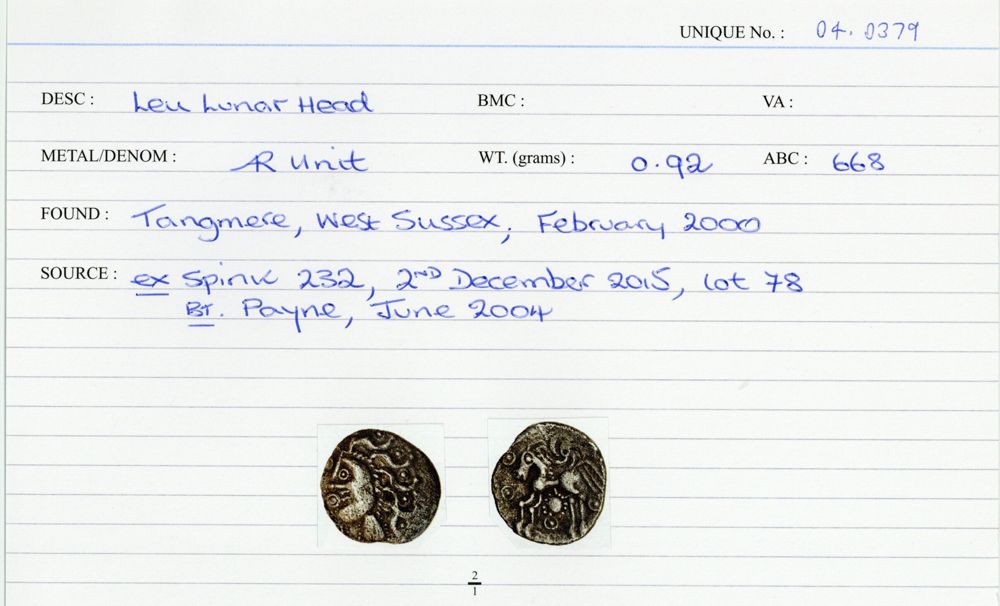 UNIQUE No. : 04.0379
DESC : Leu Lunar Head BMC : VA :
METAL/DENOM : AR Unit WT. (grams) : 0.92 ABC : 668
FOUND : Tangmere, West Sussex, February 2000
SOURCE : ex Spink 232, 2ND December 2015, lot 78
BT. Payne, June 2004
2
1